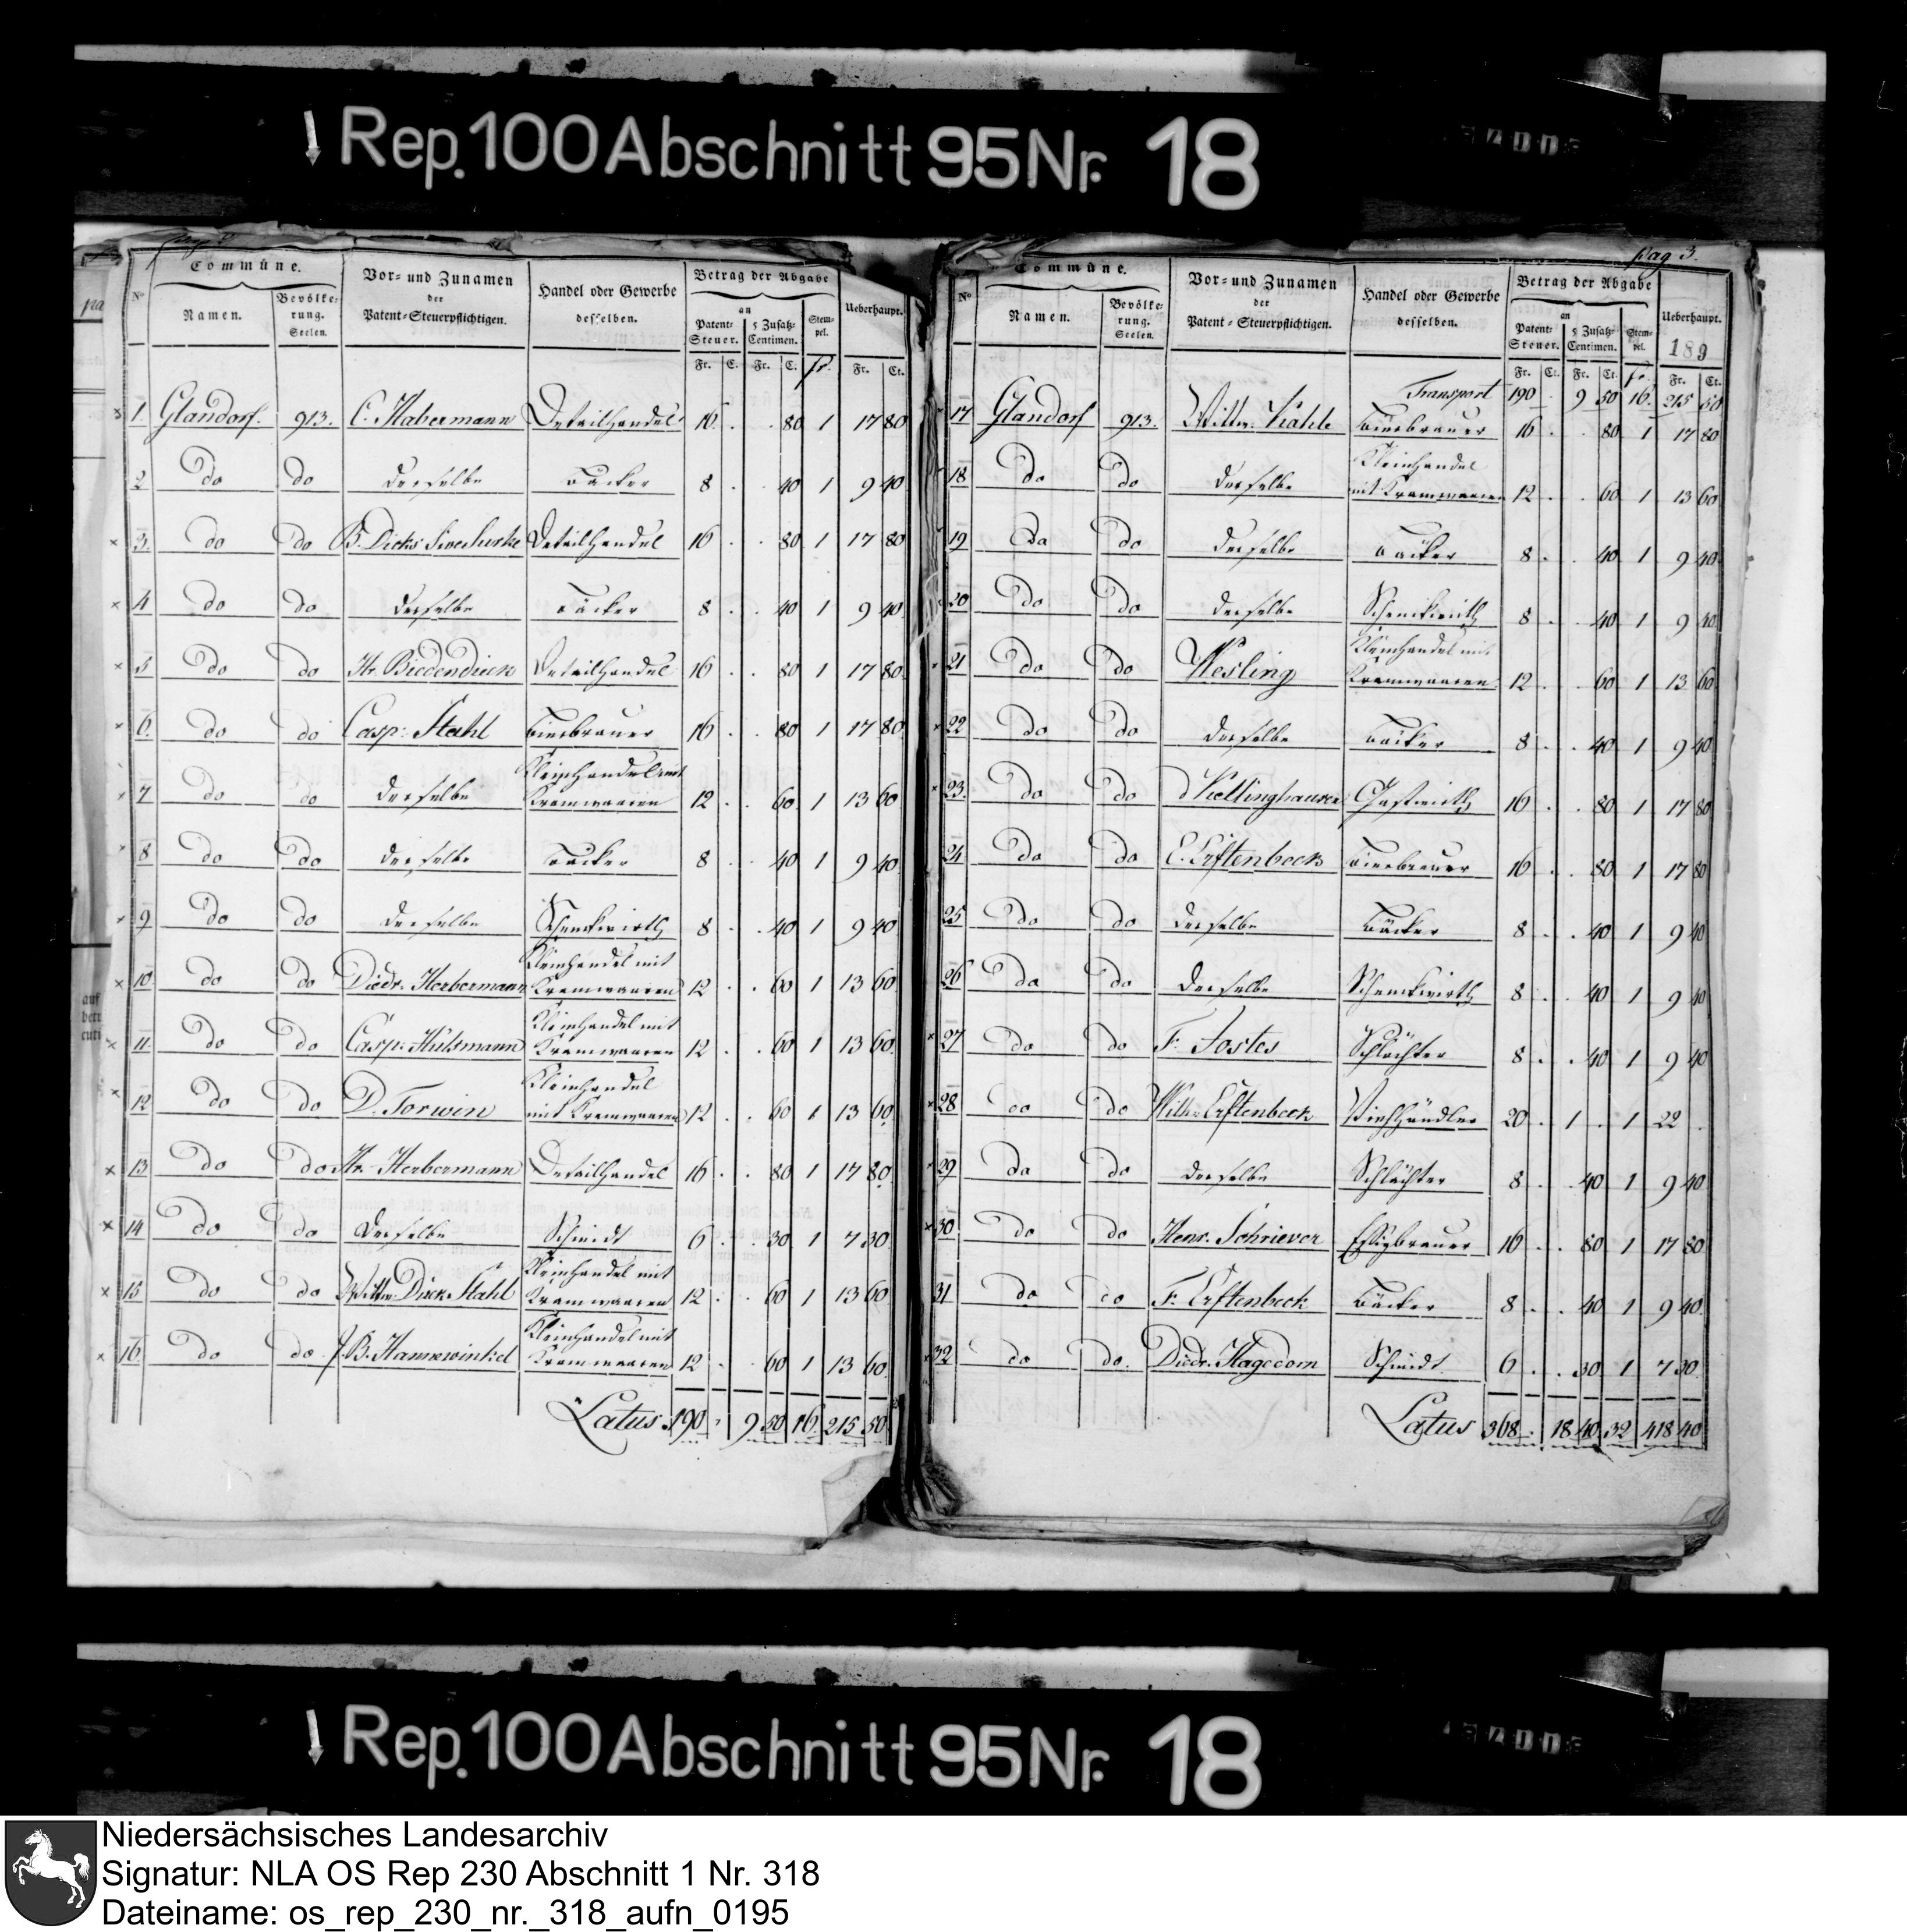 Rep. 100 Abschnitt 95 Nr. 18
Commüne.
Vor- und Zunamen
der
Patent-Steuerpflichtigen.
Handel oder Gewerbe
desselben.
Betrag der Abgabe
an
Ueberhaupt.
No
Namen.
Bevölke-
rung.
Seelen.
Patent-
Steuer.
5 Zusatz-
Centimen.
Stem-
pel.
Fr. C. Fr. C. fr. Fr. Ct.
1. Glandorf. 913. C. Habermann Detailhandel 16 . . 80 1 17 80
2 do do derselbe Bäcker 8 . . 40 1 9 40
3. do do B. Dicks Detailhandel 16 . . 80 1 17 80
4 do do derselbe Bäcker 8 . . 40 1 9 40
5 do do Hr. Biedendieck Detailhandel 16 . . 80 1 17 80
6. do do Casp: Stahl Bierbrauer 16 . . 80 1 17 80
7 do do derselbe Kleinhandel mit
Kramwaaren 12 . . 60 1 13 60
8 do do derselbe Bäcker 8 . . 40 1 9 40
9. do do derselbe Schenkwirth 8 . . 40 1 9 40
10. do do Diedr. Herbermann Kleinhandel mit
Kramwaaren 12 . . 60 1 13 60
11. do do Casp: Hülsmann Kleinhandel mit
Kramwaaren 12 . . 60 1 13 60
12 do do D. Torwin Kleinhandel
mit Kramwaaren 12 . . 60 1 13 60
13. do do Hr. Herbermann Detailhandel 16 . . 80 1 17 80
14 do do derselbe Schmidt 6 . . 30 1 7 30
15 do do Wittw. Dirck. Stahl Kleinhandel mit
Kramwaaren 12 . . 60 1 13 60
16. do do J. B. Hannewinkel Kleinhandel mit
Kramwaaren 12 . . 60 1 13 60
Latus. 190 . 9 50 16. 215 50
pag 3.
Commüne.
Vor- und Zunamen
der
Patent-Steuerpflichtigen.
Handel oder Gewerbe
desselben.
Betrag der Abgabe
an
Ueberhaupt.
189
No
Namen.
Bevölke-
rung.
Seelen.
Patent-
Steuer.
5 Zusatz-
Centimen.
Stem-
pel.
Fr. Ct. Fr. Ct. fr. Fr. Ct.
Transport 190 . 9 50 16. 215 50
17 Glandorf 913. Wittw. Kahle Bierbrauer 16 . . 80 1 17 80
18 do do derselbe Kleinhandel
mit Kramwaaren 12 . . 60 1 13 60
19 do do derselbe Bäcker 8 . . 40 1 9 40
20 do do derselbe Schenkwirth 8 . . 40 1 9 40
21 do do Wesling Kleinhandel mit
Kramwaaren 12 . . 60 1 13 60
22 do do derselbe Bäcker 8 . . 40 1 9 40
23. do do Kellinghausen Gastwirth 16 . . 80 1 17 80
24 do do E. Erftenbeck Bierbrauer 16 . . 80 1 17 80
25 do do derselbe Bäcker 8 . . 40 1 9 40
26 do do derselbe Schenkwirth 8 . . 40 1 9 40
27 do do F. Jostes Schlächter 8 . . 40 1 9 40
28 do do Wilh: Erftenbeck Viehhändler 20 . 1 . 1 22 .
29 do do derselbe Schlächter 8 . . 40 1 9 40
30 do do Henr. Schriever Essigbrauer 16 . . 80 1 17 80
31 do do F. Erftenbeck Bäcker 8 . . 40 1 9 40
32 do do. Diedr. Hagedorn Schmidt 6 . . 30 1 7 30
Latus 368 . 18 40 32 418 40
Rep. 100 Abschnitt 95 Nr. 18
Niedersächsisches Landesarchiv
Signatur: NLA OS Rep 230 Abschnitt 1 Nr. 318
Dateiname: os_rep_230_nr._318_aufn_0195